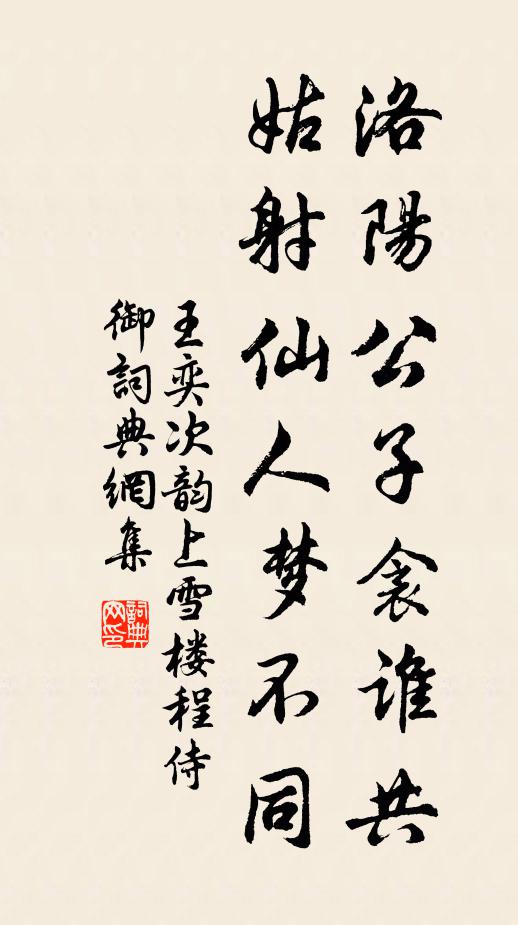 洛陽公子衾谁共
姑射仙人梦不同
王奕次韵上雪楼程侍
御詞典網集
詞典网印